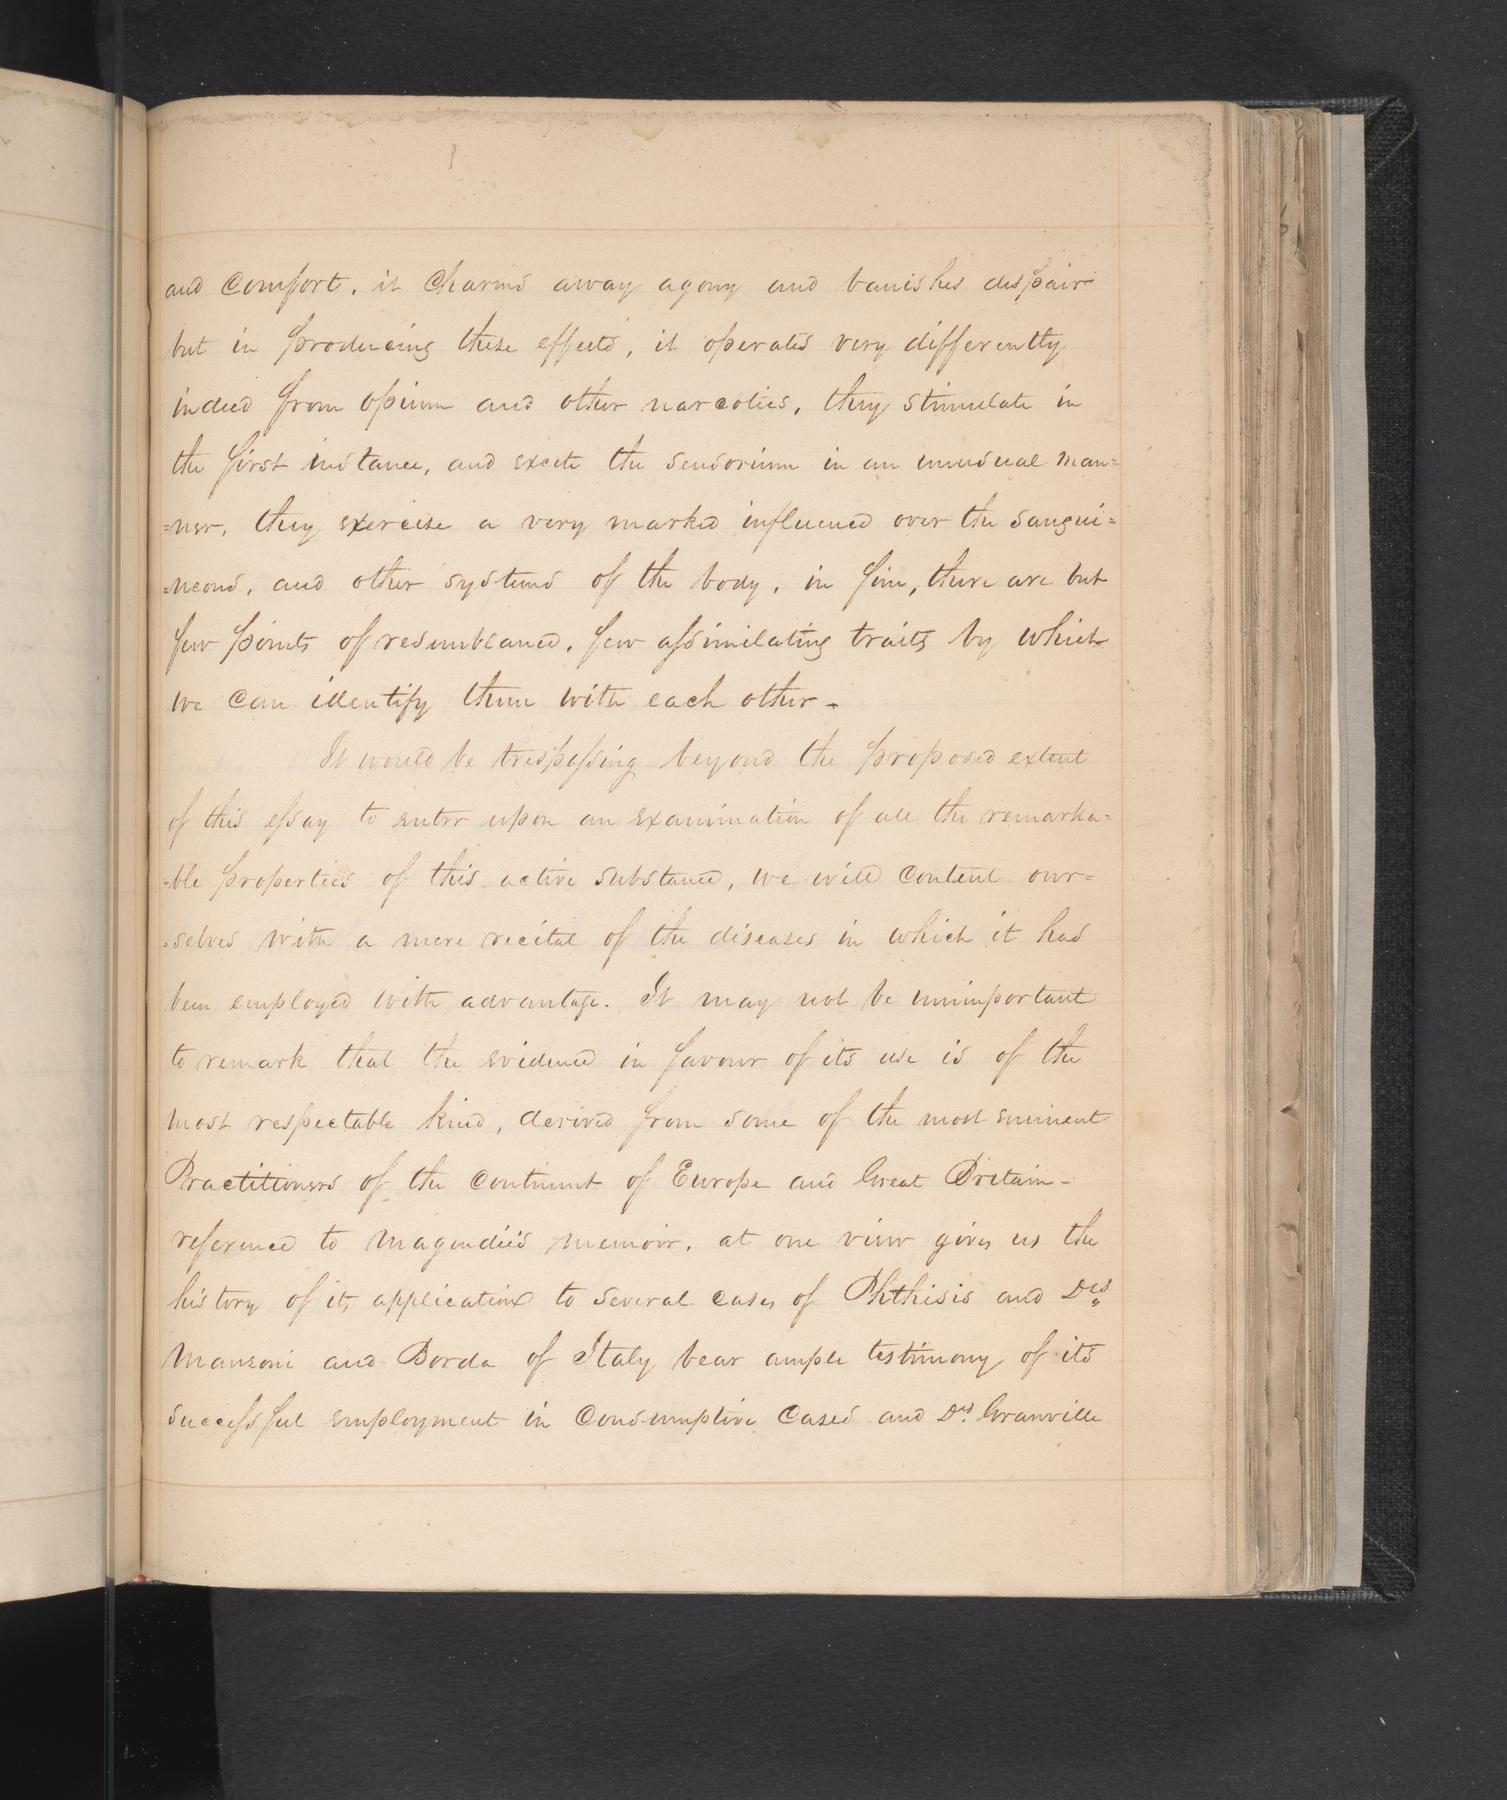 and comfort, it charms away agony and banishes despair
but in producing these effects, it operates very differently
indeed from opium and other narcotics, they stimulate in
the first instance, and excite the sensorium in an unusual man=
=ner, they exercise a very marked influence over the sangui=
=neous, and other systems of the body, in fine, there are but
few points of resemblance, few assimilating traits by which
we can identify them with each other -
It would be trespassing beyond the proposed extent
of this essay to enter upon an examination of all the remarka=
=ble properties of this active substance, we will content our=
=selves with a mere recital of the diseases in which it has
been employed with advantage. It may not be unimportant
to remark that the evidence in favour of its use is of the
most respectable kind, derived from some of the most eminent
Practitioners of the continent of Europe and Great Britain -
reference to Magendie's memoir, at one view gives us the
history of its application to several cases of Phthisis and Drs
Manzoni and Borda of Italy bear ample testimony of its
successful employment in Consumptive Cases and Drs Granville